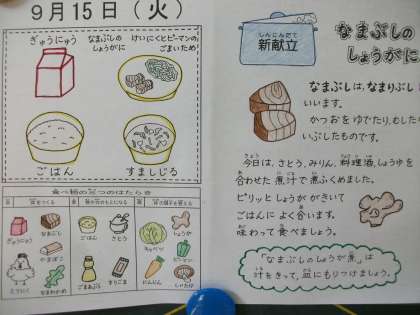 9月15日（火）
ぎゅうにゅう
なまぶしの
しょうがに
けいにくとピーマンの
ごまいため
ごはん
すましじる
食べ物の三つのはたらき
ぎゅうにゅう
なまぶし
ごはん
さとう
しょうが
やまぼう
キャベツ
ピーマン
とりにく
なまわかめ
ごまあぶら
すりごま
にんじん
しいたけ
しんこんだて
新献立
なまぶしの
しょうがに
なまぶしは、なまりぶしとも
いいます。
かつおをゆでたり、むしたり、
いぶしたものです。
きょう
今日は、さとう、みりん、料理酒、しょうゆを
合わせた煮汁で煮ふくめました。
ピリッとしょうががきいて
ごはんによく合います。
味わって食べましょう。
「なまぶしのしょうが煮」は
汁をきって、皿にもりつけましょう。